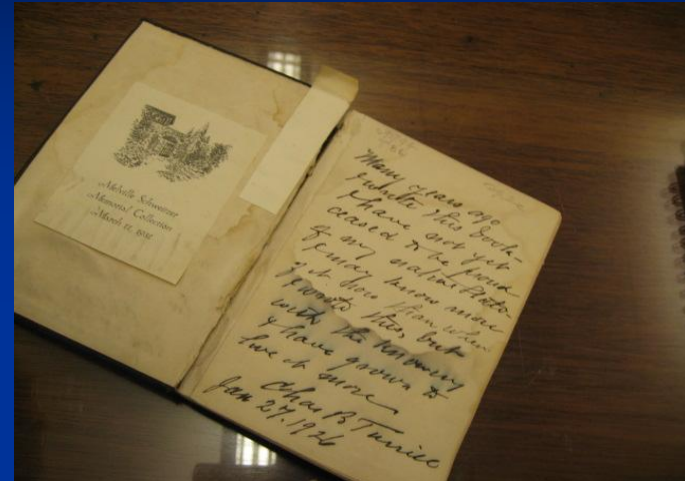 Melville Schweitzer
Memorial Collection
March 11, 1925
Many years ago
I wrote this book
I have not yet
ceased to be proud
of my native State
I may know more
of it now than when
I wrote this but
with the knowing
I have grown to
love it more
Chas B Turrill
Jan 27. 1926